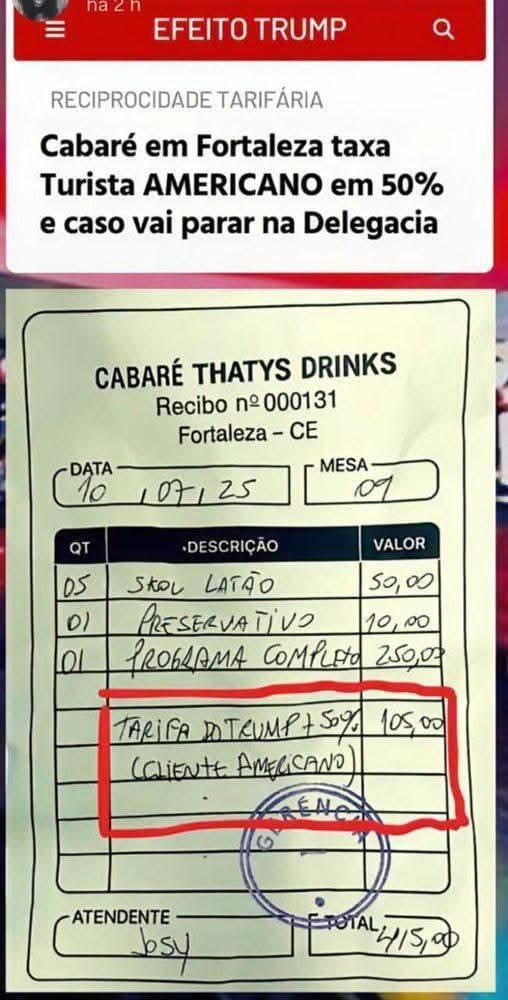 há 2 h
EFEITO TRUMP
RECIPROCIDADE TARIFÁRIA
Cabaré em Fortaleza taxa
Turista AMERICANO em 50%
e caso vai parar na Delegacia
CABARÉ THATYS DRINKS
Recibo nº 000131
Fortaleza – CE
DATA
10 / 07 / 25
MESA
09
QT .DESCRIÇÃO VALOR
05 SKOL LATÃO 50,00
01 PRESERVATIVO 10,00
01 PROGRAMA COMPLETO 250,00
TARIFA DO TRUMP + 50% 105,00
(CLIENTE AMERICANO)
GERÊNCIA
ATENDENTE
Josy
TOTAL
415,00